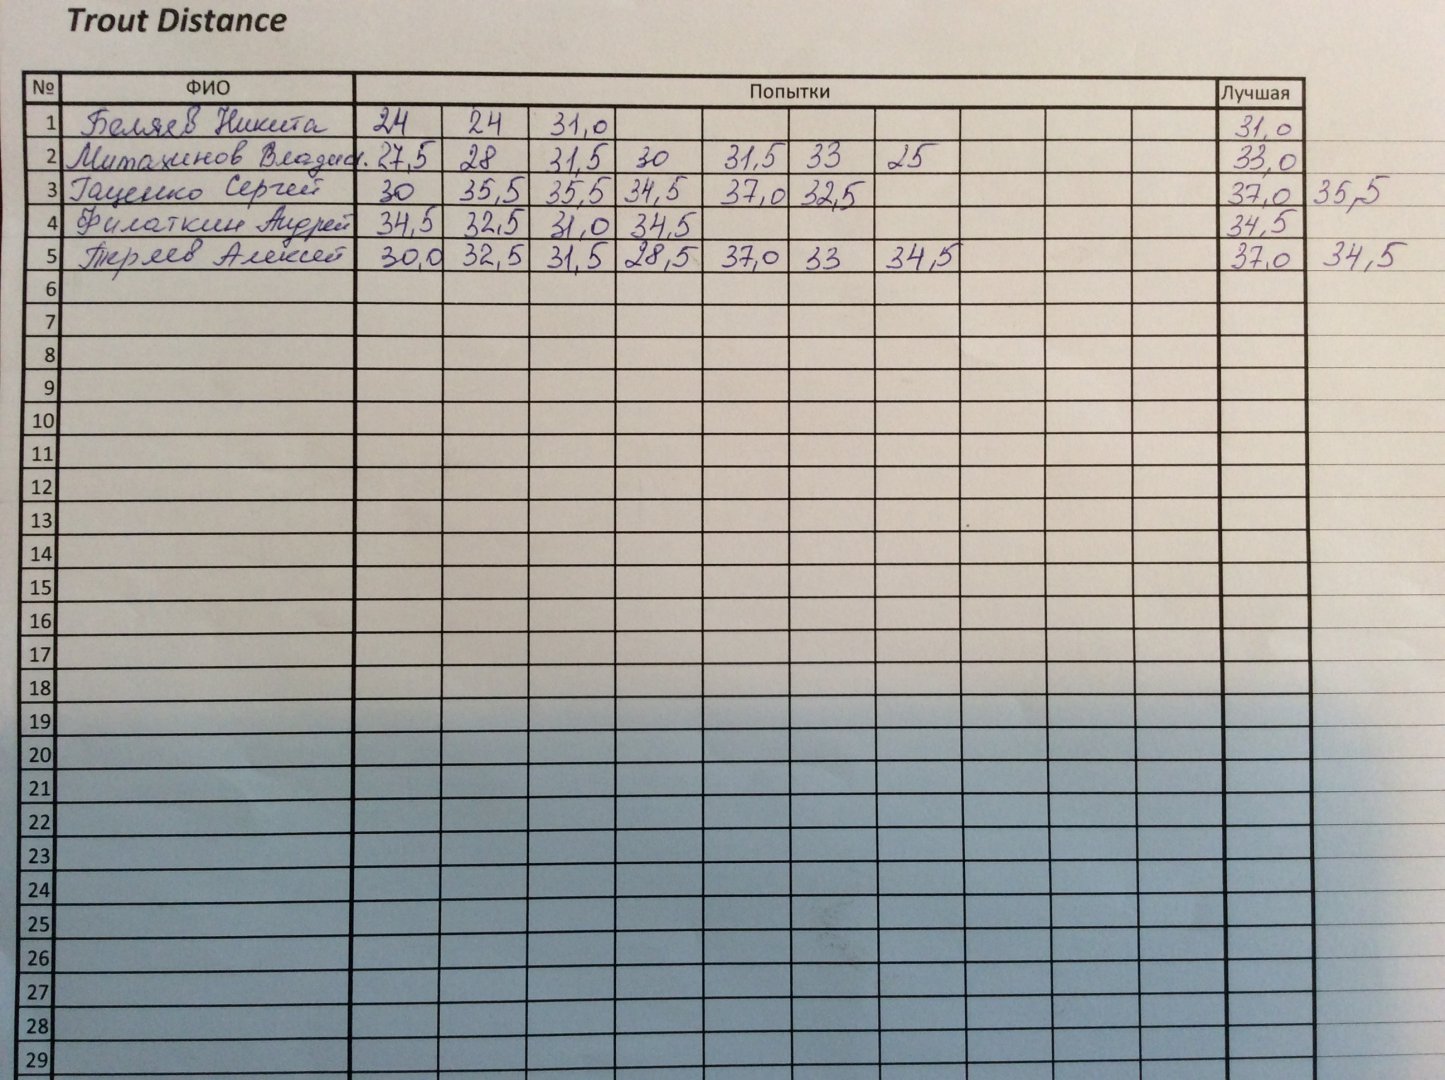 Trout Distance
№ ФИО Попытки Лучшая
1 Беляев Никита 24 24 31,0 31,0
2 Митахинов Владисл. 27,5 28 31,5 30 31,5 33 25 33,0
3 Гаценко Сергей 30 35,5 35,5 34,5 37,0 32,5 37,0 35,5
4 Филаткин Андрей 34,5 32,5 31,0 34,5 34,5
5 Теряев Алексей 30,0 32,5 31,5 28,5 37,0 33 34,5 37,0 34,5
6
7
8
9
10
11
12
13
14
15
16
17
18
19
20
21
22
23
24
25
26
27
28
29